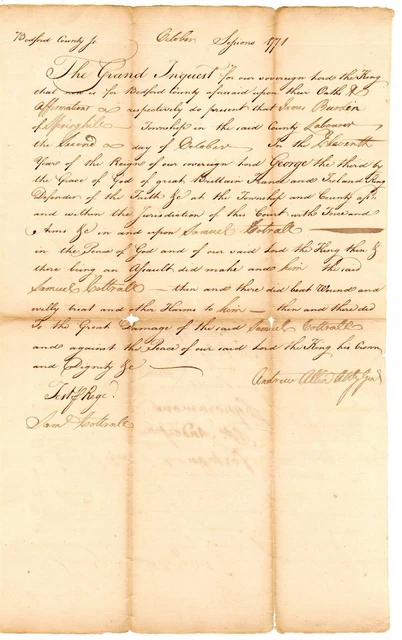 Bedford County ss October Sessions 1771
The Grand Inquest for our sovereign Lord the King
that now is for Bedford County aforesaid upon their Oath &
Affirmation respectively do present that Burden
of Springhill Township in the said County Labourer
the Second day of October In the Eleventh
Year of the Reign of our sovereign Lord George the third by
the Grace of God of great Brittain France and Ireland King
Defender of the Faith &c at the Township and County afsd.
and within the Jurisdiction of this Court with Force and
Arms &c in and upon Samuel Cottrall
in the Peace of God and of our said Lord the King then &
there being an Assault did make and him the said
Samuel Cottrall then and there did beat Wound and
evilly treat and other Harms to him then and there did
To the Great Damage of the said Samuel Cottrall
and against the Peace of our said Lord the King his Crown
and Dignity &c
Andrew Allen Atty Genl
Saml Cottrall